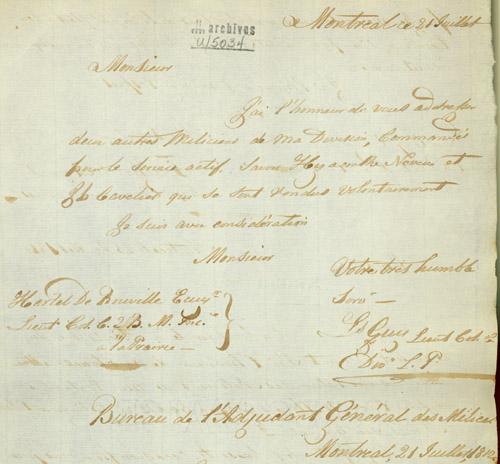 archives
U/5034
Montréal ce 21 Juillet
Monsieur
J'ai l'honneur de vous adresser
deux autres Miliciens de ma Division, Commandés
pour le service actif, Savoir Hyacinthe Neveu et
Cavelier qui se sont rendus Volontairement
Je suis avec considération
Monsieur
Votre très humble
Serv.
Hertel De Rouville Ecuyr.
Lieut Col. C. 2 B. M. Inc.
Laprairie
Ls Guy Lieut Col.
Dion. L. P
Bureau de l'Adjudant Général des Milices
Montréal, 21 Juillet